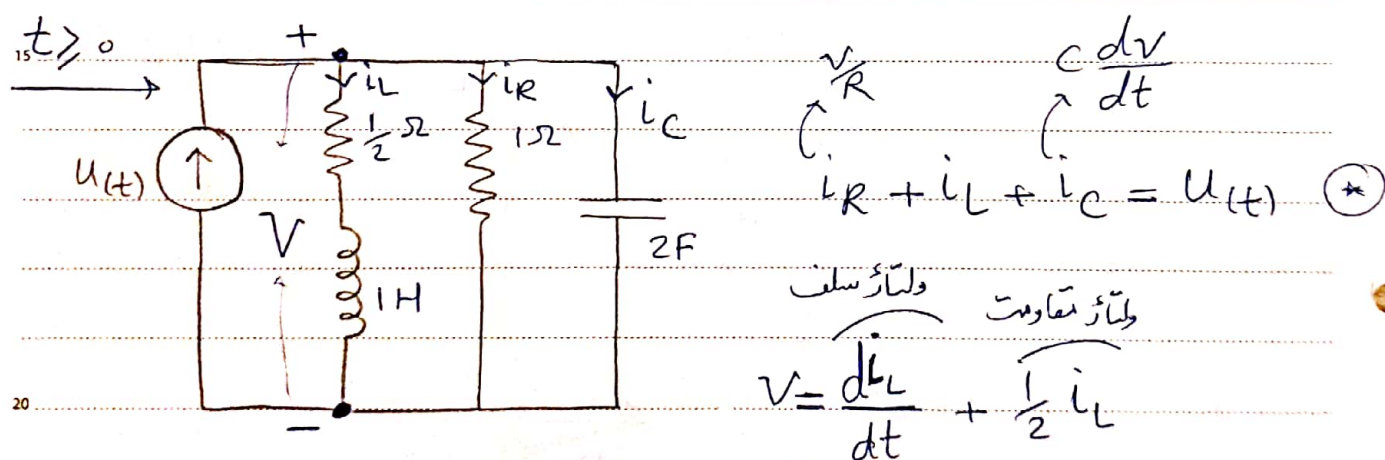 15
t ≥ 0
+
i_L
i_R
i_C
1/2 Ω
1Ω
u(t)
V
1H
2F
−
20
v/R
C dv/dt
i_R + i_L + i_C = u(t) ⊛
ولتاژ سلف
ولتاژ مقاومت
V = di_L/dt + 1/2 i_L